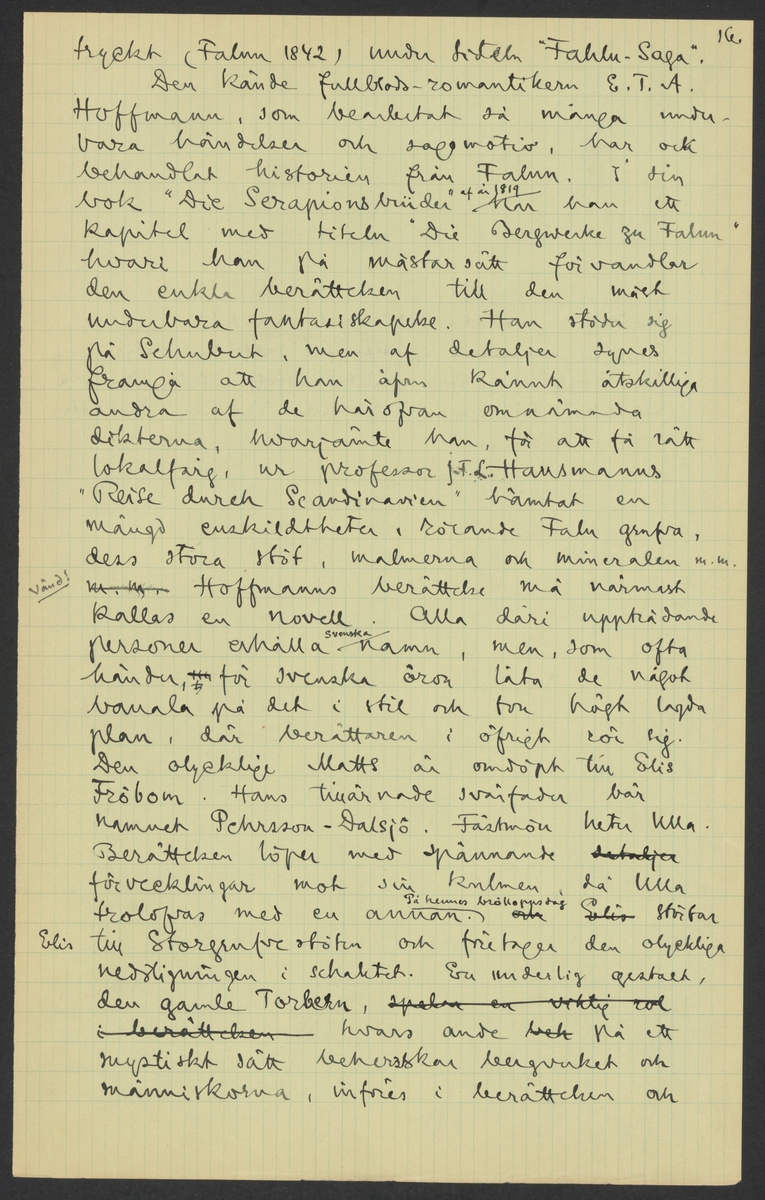 16.
tryckt (Falun 1842) under titeln "Fahlu-Saga".
Den kände fullblods-romantikern E. T. A.
Hoffmann, som bearbetat så många under-
bara händelser och sagomotiv, har ock
behandlat historien från Falun. I sin
bok "Die Serapionsbrüder" af år 1819 har han ett
kapitel med titeln "Die Bergwerke zu Falun"
hvari han på mästarsätt förvandlar
den enkla berättelsen till den mest
underbara fantasiskapelse. Han stöder sig
på Schubert, men af detaljer synes
framgå att han äfven kännt åtskilliga
andra af de härofvan omnämnda
dikterna, hvarjämte han, för att få rätt
lokalfärg, ur professor J.F.L. Hausmanns
"Reise durch Scandinavien" hämtat en
mängd enskildtheter, rörande Falu grufva,
dess stora stöt, malmerna och mineralen m.m.
Vänd! m. m. Hoffmanns berättelse må närmast
kallas en novell. Alla däri uppträdande
personer erhålla svenska namn, men, som ofta
händer, för svenska öron låta de något
banala på det i stil och ton högt lagda
plan, där berättaren i öfrigt rör sig.
Den olycklige Matts är omdöpt till Elis
Fröbom. Hans tillärnade svärfader bär
namnet Pehrsson-Dalsjö. Fästmön heter Ulla.
Berättelsen löper med spännande detaljer
förvecklingar mot sin kulmen, då Ulla
trolofvas med en annan. På hennes bröllopsdag och Elis störtar
Elis till Storgrufvestöten och företager den olyckliga
nedstigningen i schaktet. En underlig gestalt,
den gamle Torbern, spelar en viktig rol
i berättelsen hvars ande beh på ett
mystiskt sätt beherskar bergverket och
människorna, införes i berättelsen och